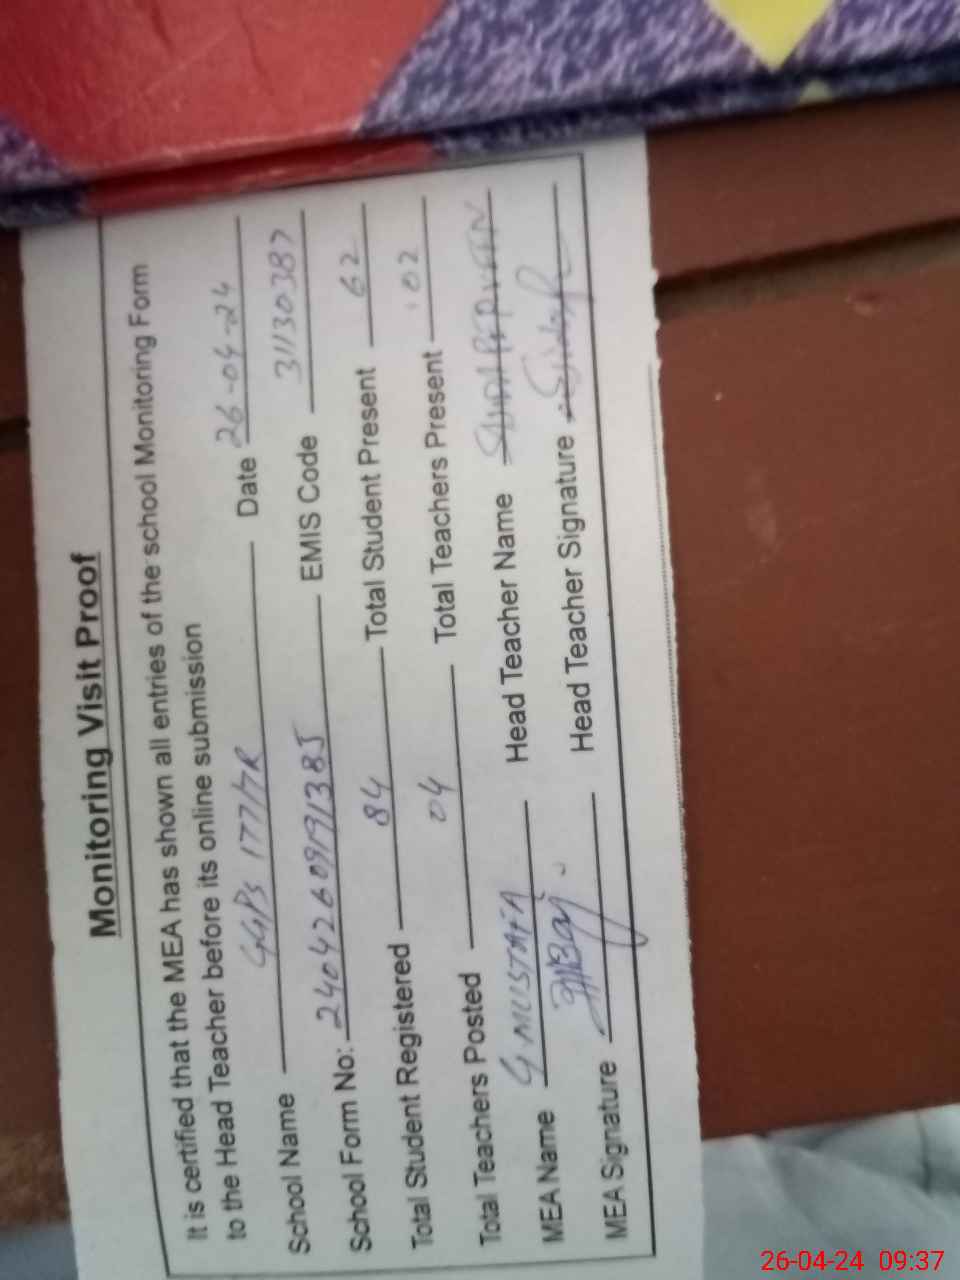 Monitoring Visit Proof
It is certified that the MEA has shown all entries of the school Monitoring Form
to the Head Teacher before its online submission
School Name GGPS 177/7R Date 26-04-24
School Form No: 24042609191385 EMIS Code 31130387
Total Student Registered 84 Total Student Present 62
Total Teachers Posted 04 Total Teachers Present 02
MEA Name G MUSTAFA Head Teacher Name
MEA Signature Head Teacher Signature
26-04-24 09:37